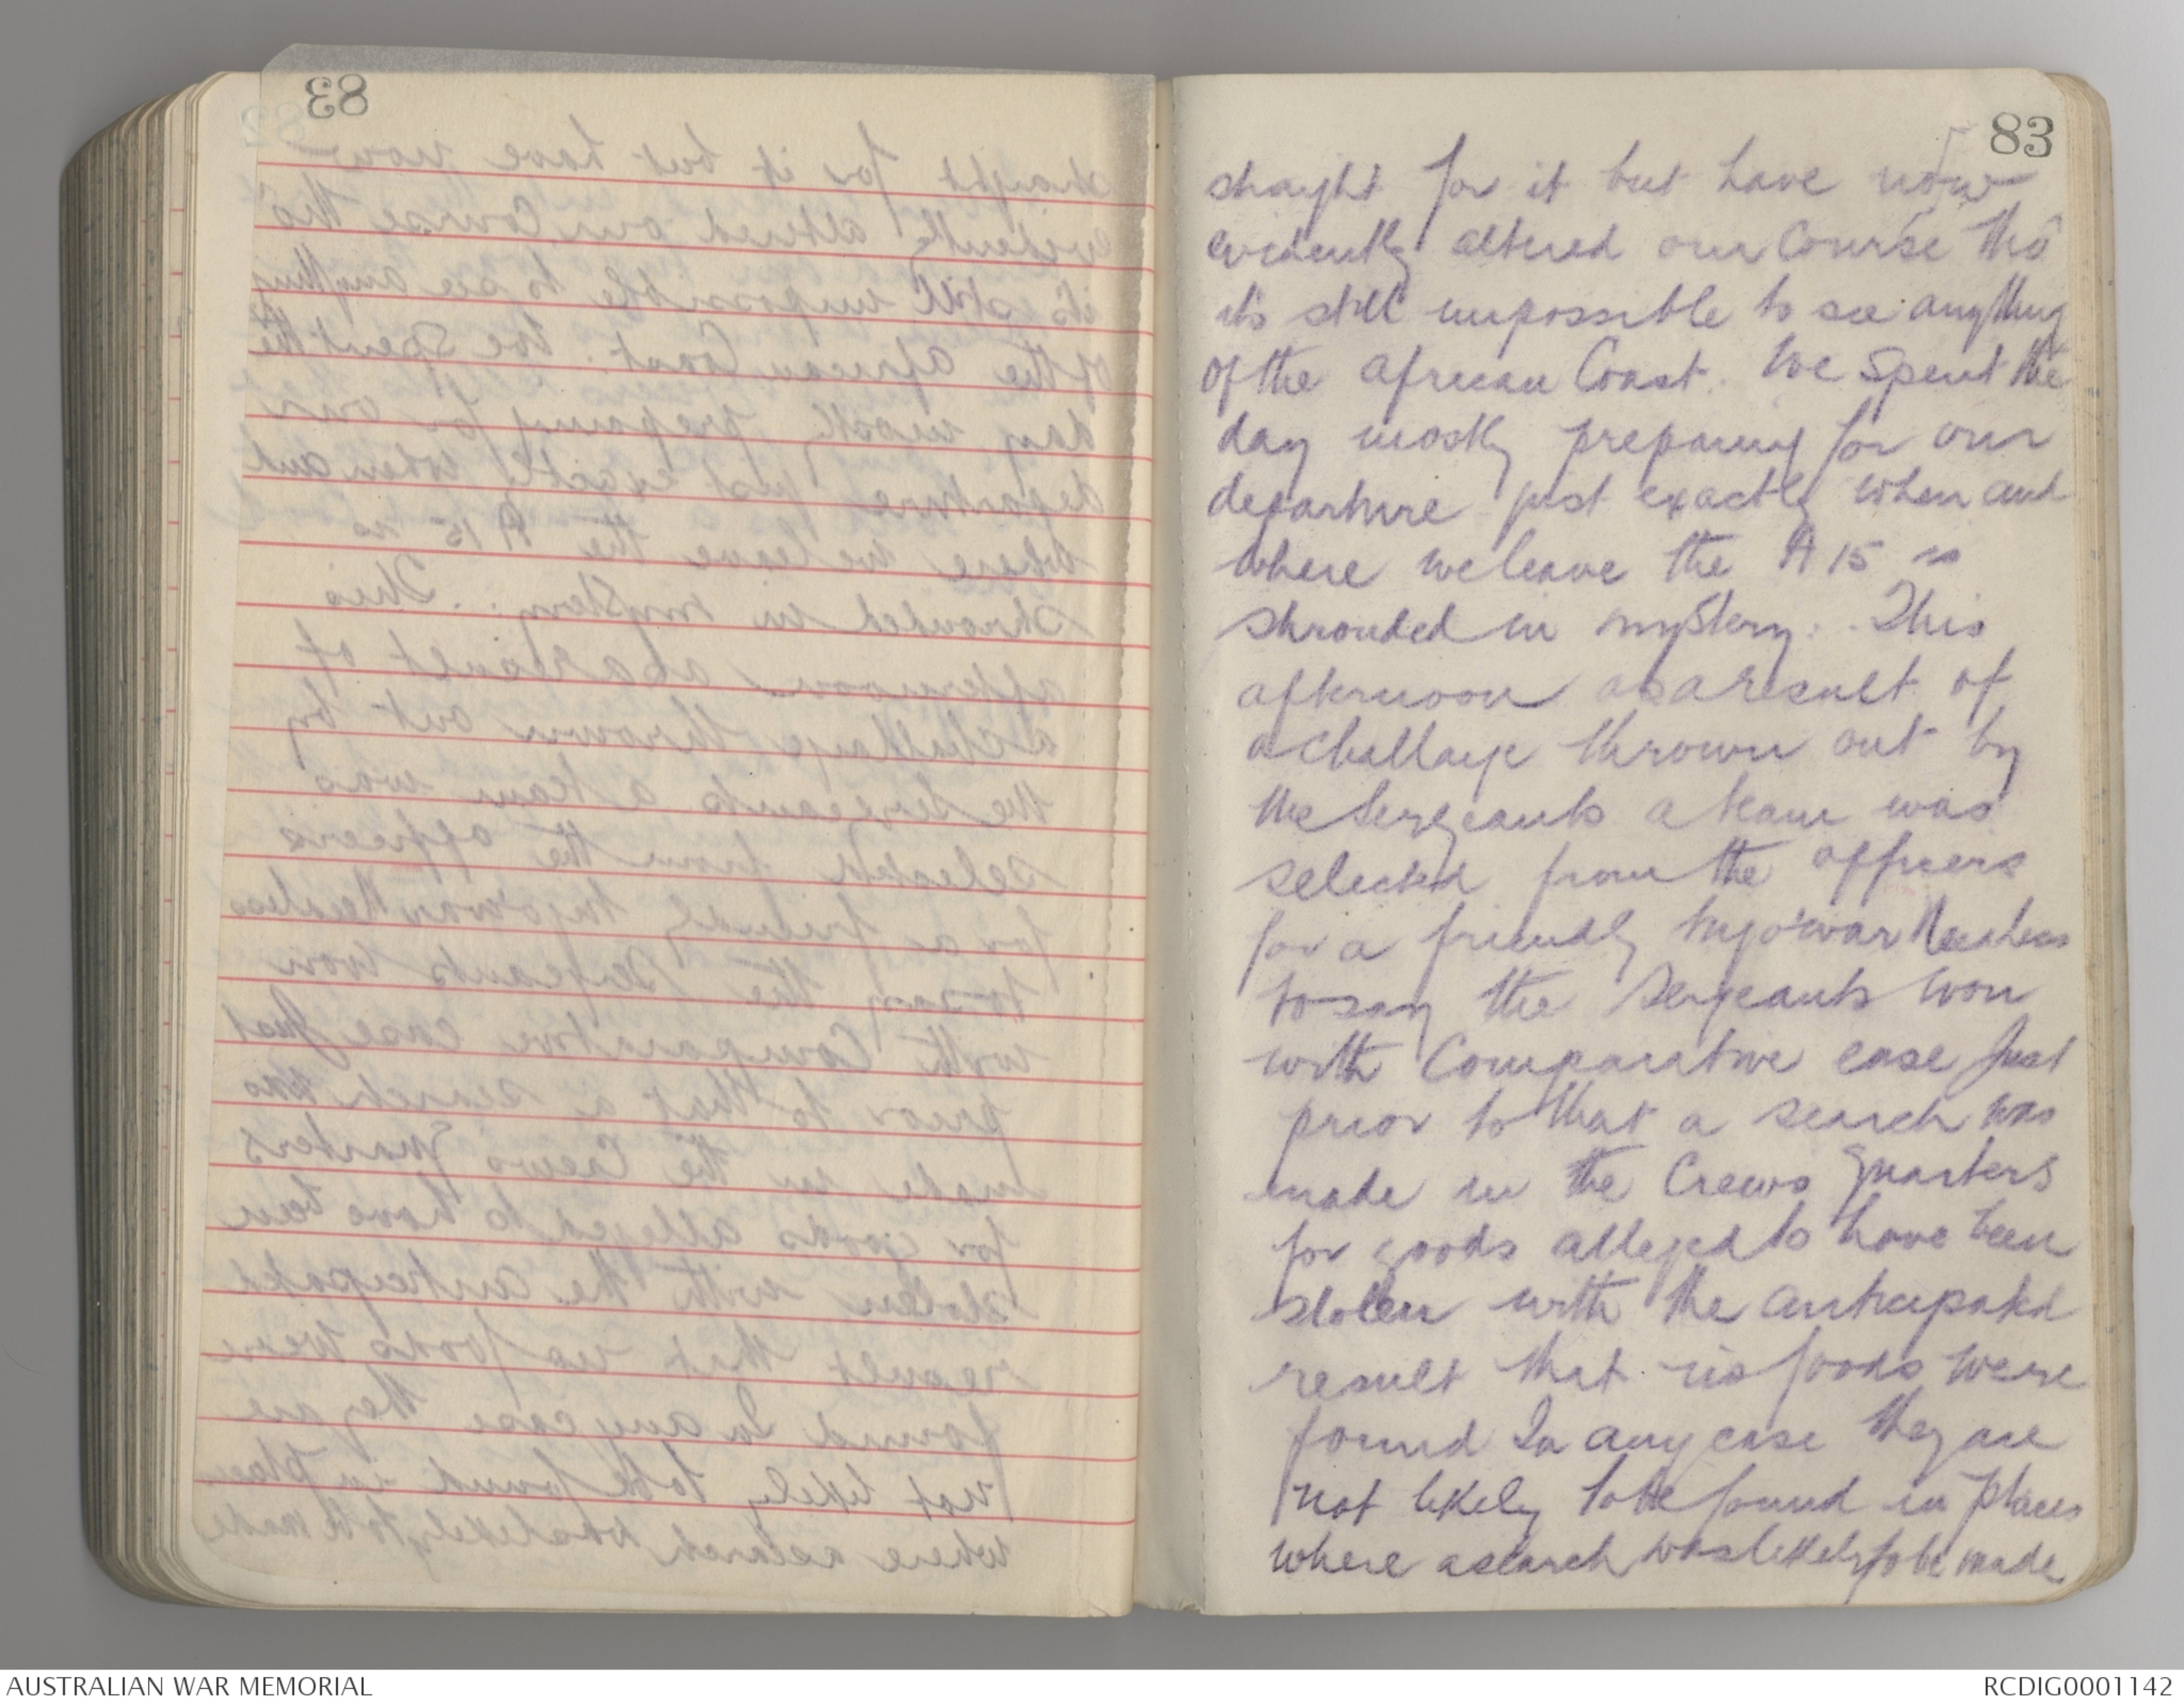 83
straight for it but have now
evidently altered our Course tho'
its still impossible to see anything
of the African Coast. We Spent the
day mostly preparing for our
departure just exactly when and
where we leave the A 15 is
shrouded in mystery. . This
afternoon as a result of
a challange thrown out by
the Sergeants a team was
selected from the officers
for a friendly tug o' war Needless
to say the Sergeants won
with Comparative ease Just
prior to that a search was
made in the Crews Quarters
for goods alleged to have been
stolen with the anticipated
result that no goods were
found In any case they are
not likely to be found in places
where a search was likely to be made
AUSTRALIAN WAR MEMORIAL
RCDIG0001142